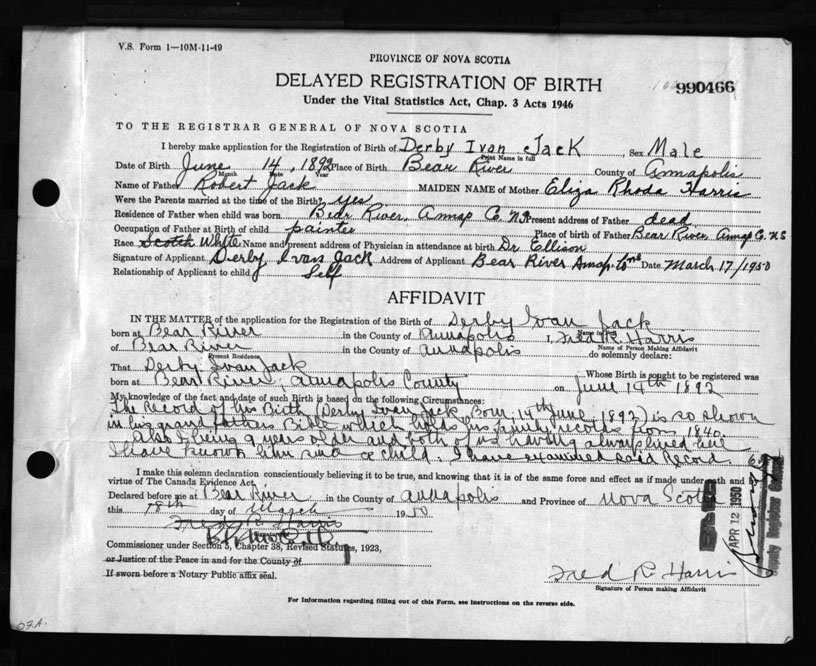 V.S. Form 1—10M-11-49
PROVINCE OF NOVA SCOTIA
DELAYED REGISTRATION OF BIRTH
990466
Under the Vital Statistics Act, Chap. 3 Acts 1946
TO THE REGISTRAR GENERAL OF NOVA SCOTIA
I hereby make application for the Registration of Birth of Derby Ivan Jack, Sex Male
Print Name in full
Date of Birth June 14, 1892 Place of Birth Bear River County of Annapolis
Month Date Year
Name of Father Robert Jack MAIDEN NAME of Mother Eliza Rhoda Harris
Were the Parents married at the time of the Birth? yes
Residence of Father when child was born Bear River, Annap Co. N.S. Present address of Father dead
Occupation of Father at Birth of child painter Place of birth of Father Bear River, Annap Co. N.S
Race Scotch White Name and present address of Physician in attendance at birth Dr Ellison
Signature of Applicant Derby Ivan Jack Address of Applicant Bear River Annap. Co NS Date March 17/1950
Relationship of Applicant to child Self
AFFIDAVIT
IN THE MATTER of the application for the Registration of the Birth of Derby Ivan Jack
Name in Full
born at Bear River in the County of Annapolis I, Fred R. Harris
Name of Person Making Affidavit
of Bear River in the County of Annapolis do solemnly declare:
Present Residence
That Derby Ivan Jack Whose Birth is sought to be registered was
born at Bear River, Annapolis County on June 14th 1892
My knowledge of the fact and date of such Birth is based on the following Circumstances:
The Record of his Birth (Derby Ivan Jack, Born 14th June, 1892) is so shown
in his grand fathers Bible which holds his family records from 1840.
Also I being 9 years older and both of us having always lived here
I have known him since a child. I have examined said Record.
I make this solemn declaration conscientiously believing it to be true, and knowing that it is of the same force and effect as if made under oath and by
virtue of The Canada Evidence Act.
Declared before me at Bear River in the County of Annapolis and Province of Nova Scotia
this 18th day of March 1950
Fred R. Harris
Commissioner under Section 5, Chapter 38, Revised Statutes, 1923,
or Justice of the Peace in and for the County of
If sworn before a Notary Public affix seal.
APR 12 1950
Deputy Registrar
Fred R. Harris
Signature of Person making Affidavit
For Information regarding filling out of this Form, see instructions on the reverse side.